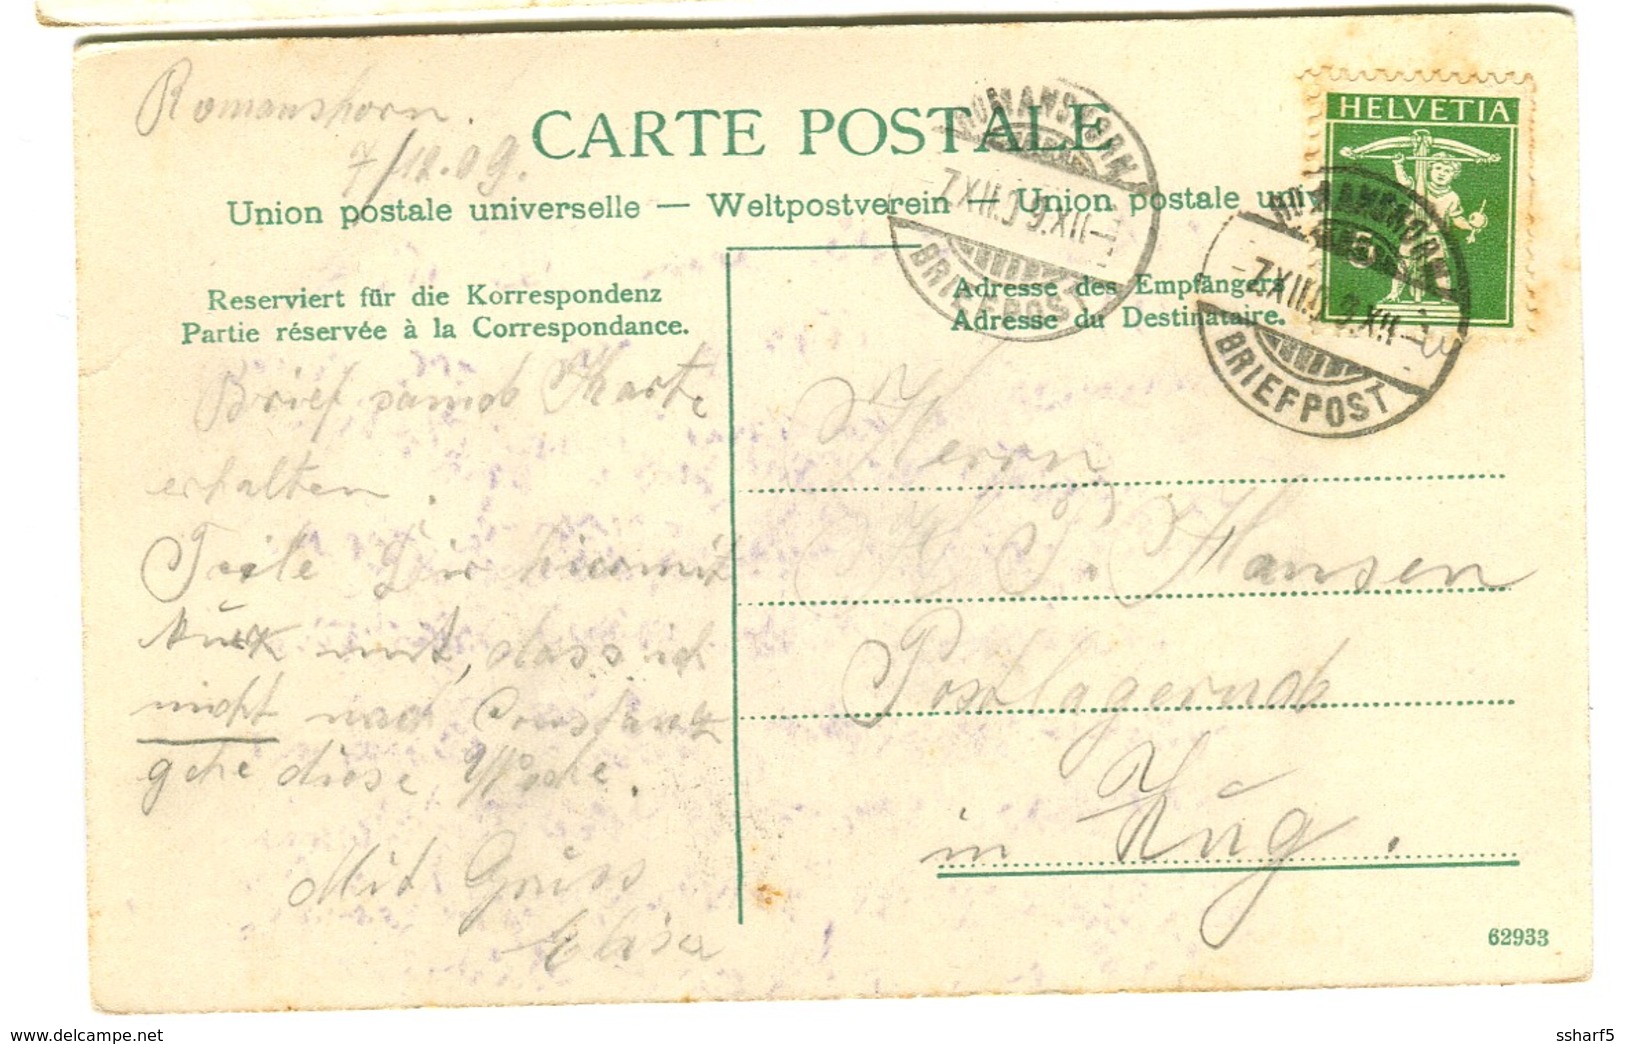 Romanshorn.
7/12.09.
CARTE POSTALE
Union postale universelle — Weltpostverein — Union postale univ
HELVETIA
5
ROMANSHORN
7.XII.09.XII-
BRIEFPOST
ROMANSHORN
7.XII.09.XII-
BRIEFPOST
Reserviert für die Korrespondenz
Partie réservée à la Correspondance.
Adresse des Empfängers
Adresse du Destinataire.
Brief samd Karte
erhalten.
Teile Dir hiermit
kurz mit, dass ich
nicht nach Constanz
gehe diese Woche.
Mit Gruss
Elisa
Herrn
H. J. Hansen
Postlagernd
in Zug.
62933
ssharf5